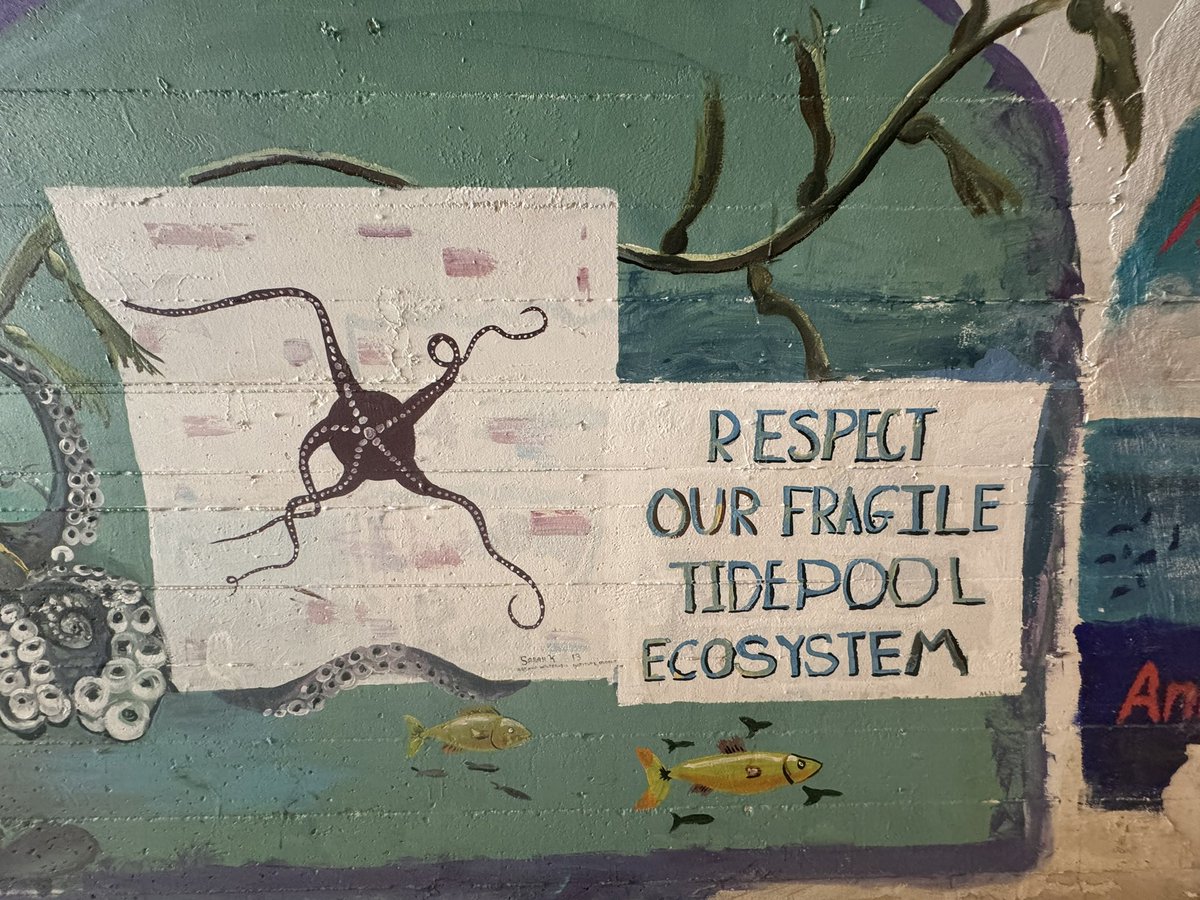 RESPECT
OUR FRAGILE
TIDEPOOL
ECOSYSTEM
Sarah K 13
An